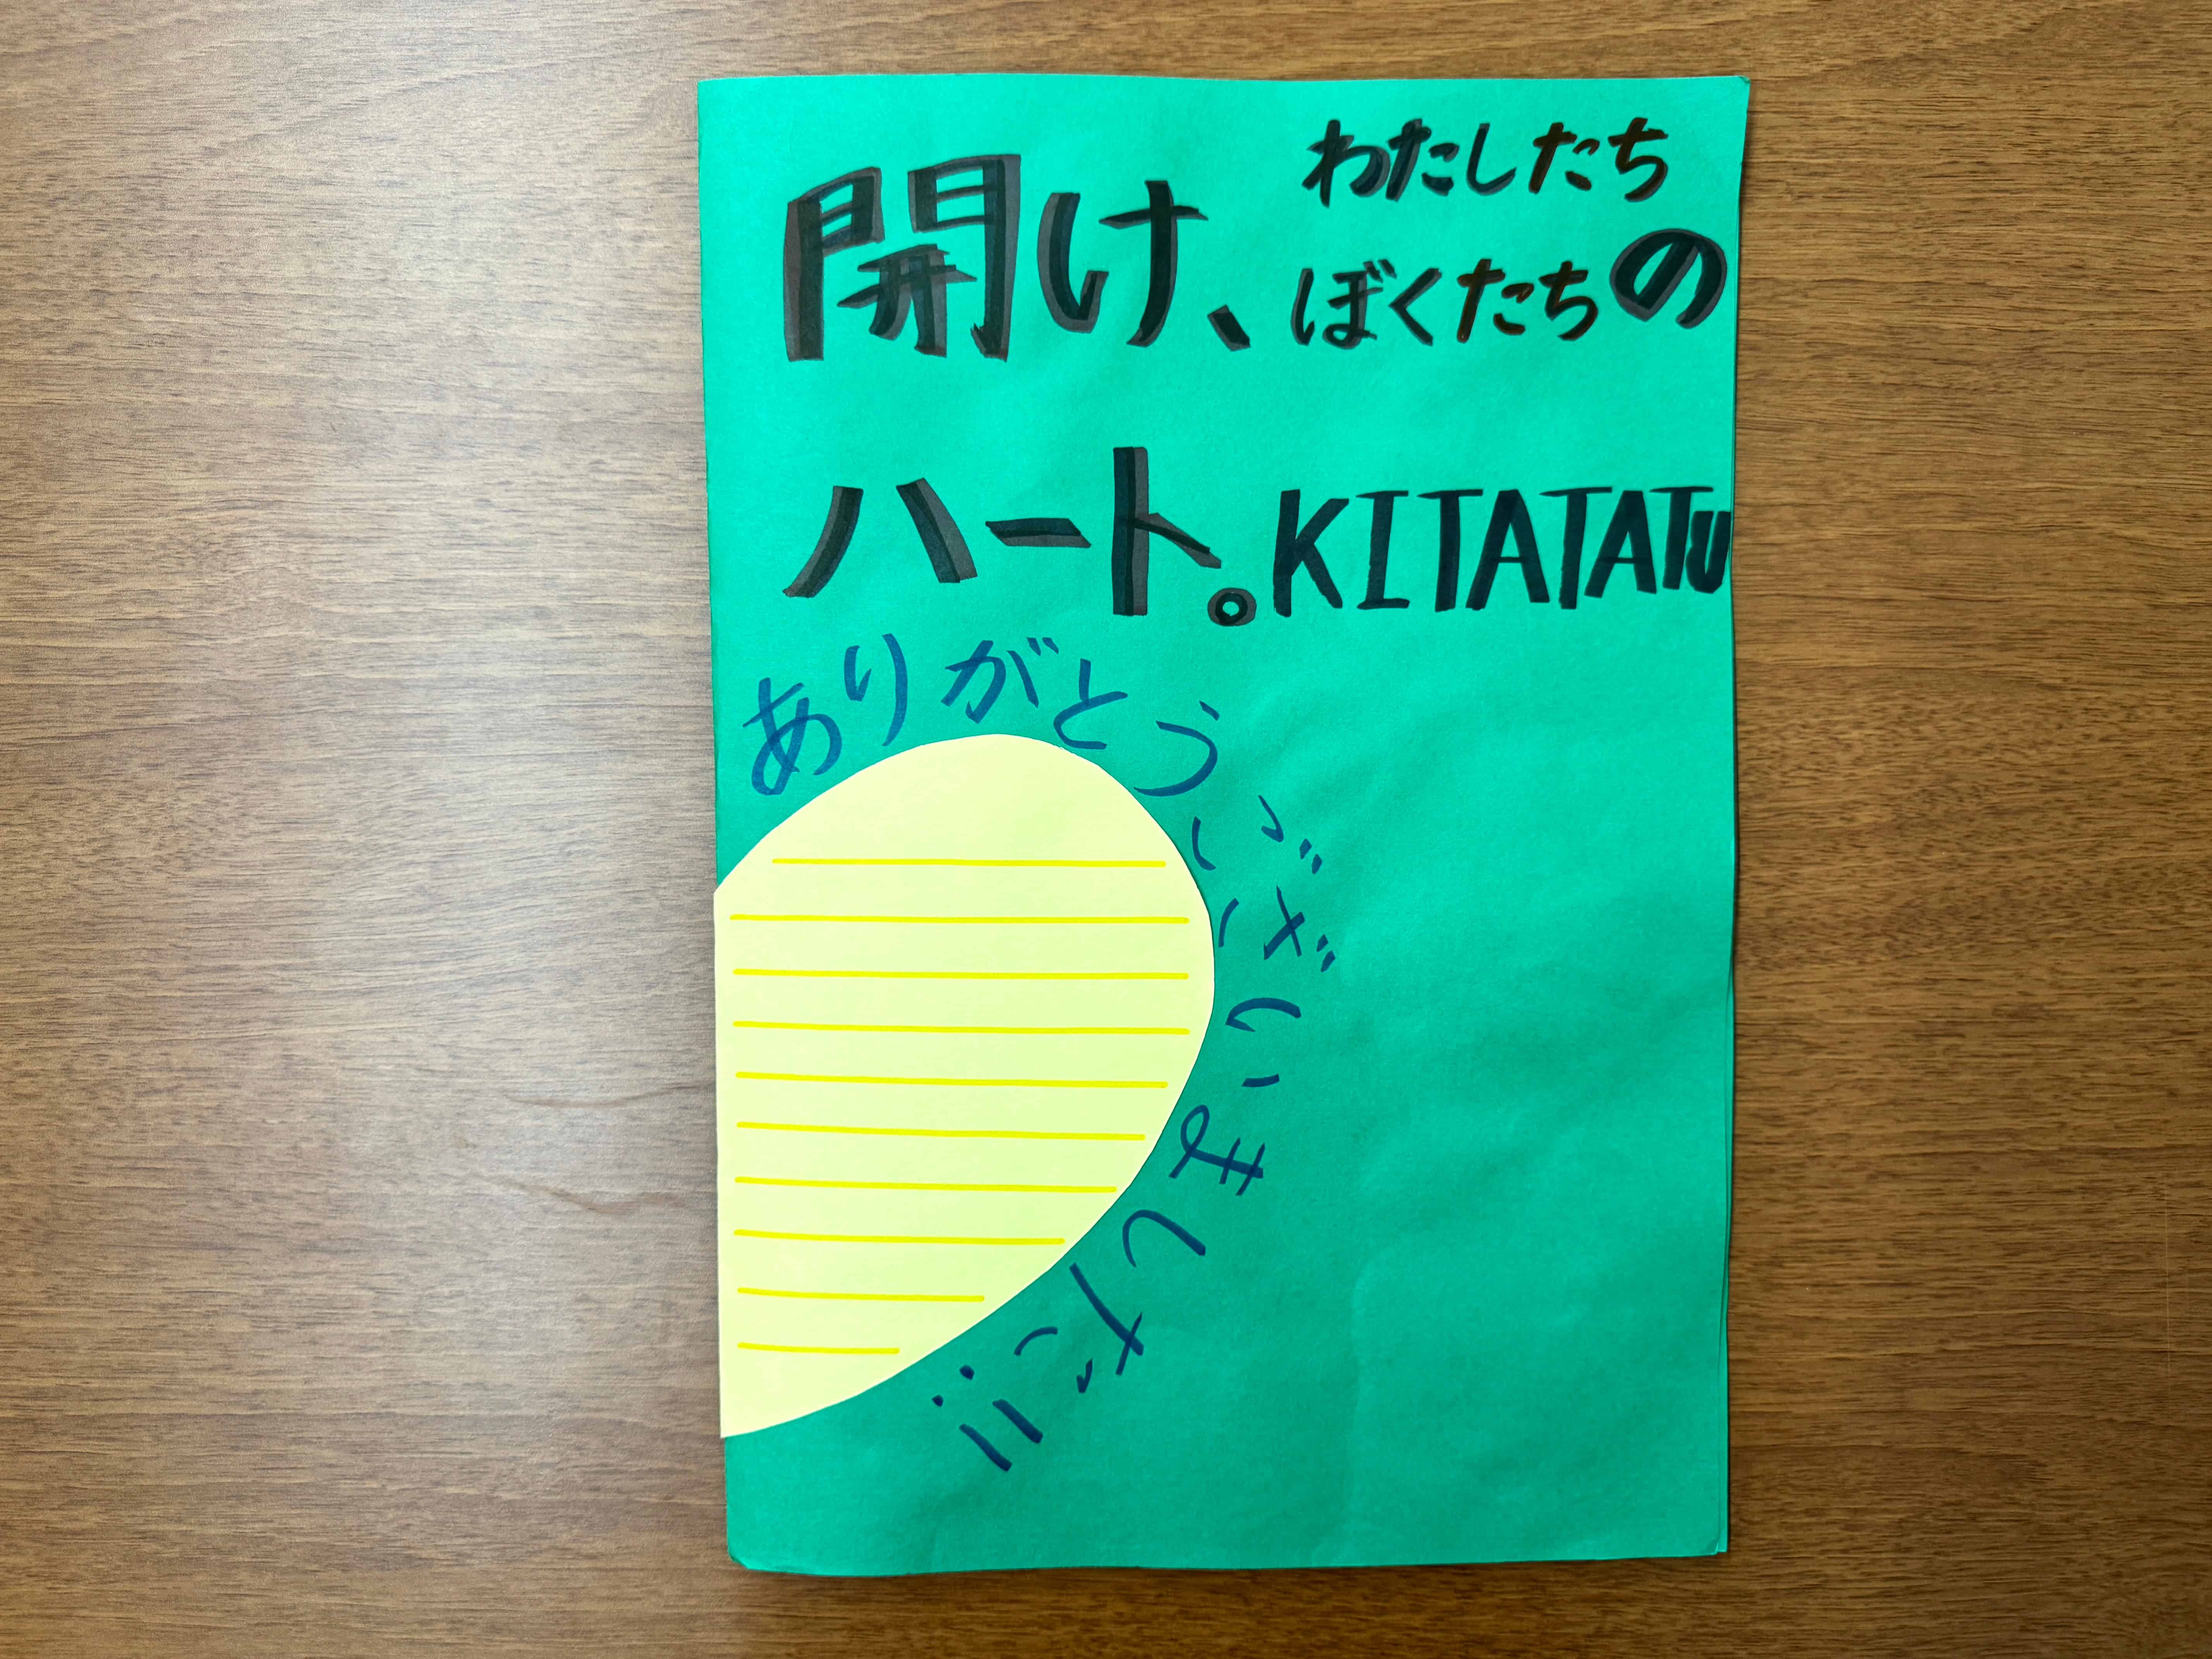 開け、わたしたち
ぼくたちの
ハート。KITATATU
ありがとうございました!!